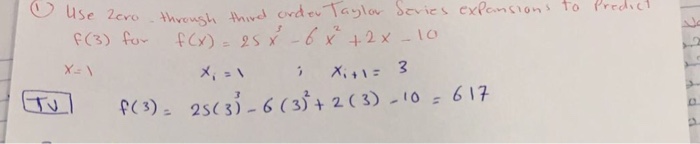 ① Use Zero-through third order Taylor Series expansions to Predict
f(3) for f(x) = 25x³ - 6x² + 2x - 10
x=1 xᵢ = 1 ; xᵢ₊₁ = 3
TV f(3) = 25(3)³ - 6(3)² + 2(3) - 10 = 617